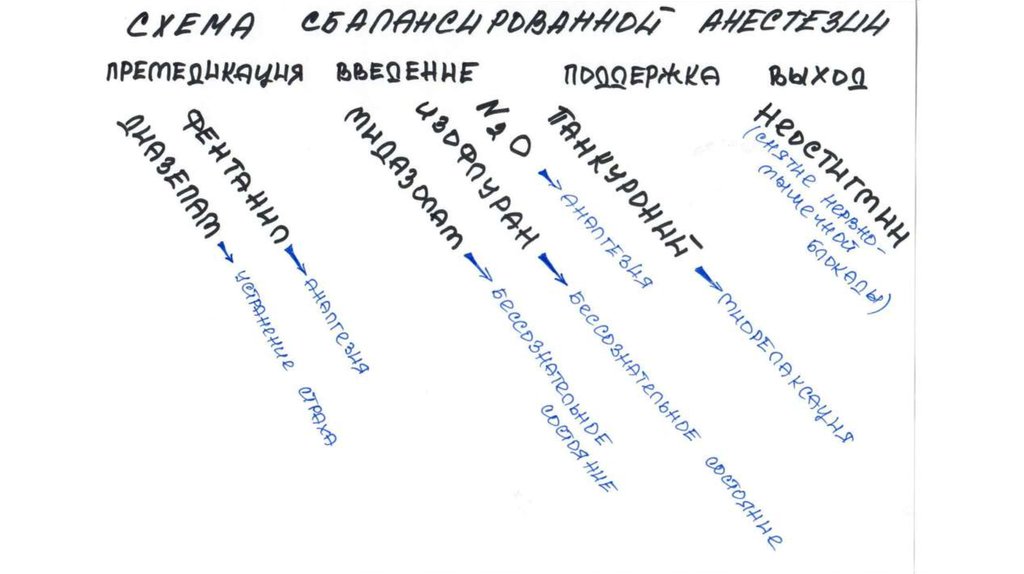 СХЕМА СБАЛАНСИРОВАННОЙ АНЕСТЕЗИИ
ПРЕМЕДИКАЦИЯ ВВЕДЕНИЕ ПОДДЕРЖКА ВЫХОД
ДИАЗЕПАМ
УСТРАНЕНИЕ СТРАХА
ФЕНТАНИЛ
АНАЛГЕЗИЯ
МИДАЗОЛАМ
БЕССОЗНАТЕЛЬНОЕ
СОСТОЯНИЕ
ИЗОФЛУРАН
БЕССОЗНАТЕЛЬНОЕ СОСТОЯНИЕ
N2O
АНАЛГЕЗИЯ
ПАНКУРОНИЙ
МИОРЕЛАКСАЦИЯ
НЕОСТИГМИН
(СНЯТИЕ НЕРВНО-
МЫШЕЧНОЙ
БЛОКАДЫ)